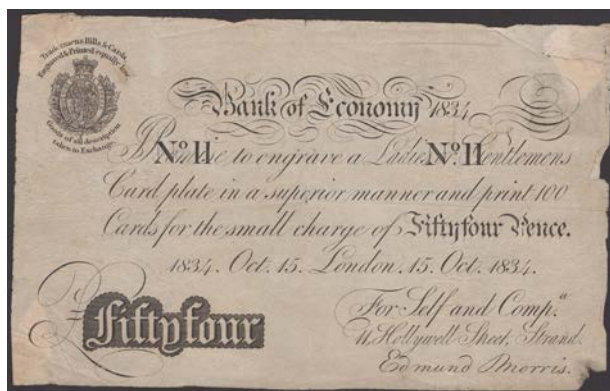 Tradesmens Bills & Cards,
Engraved & Printed equally low
Goods of all description
taken in Exchange.
Bank of Economy 1834
I Promise to engrave a Ladies or Gentlemens
No 11 No 11
Card plate in a superior manner and print 100
Cards for the small charge of Fiftyfour Pence.
1834. Oct. 15. London. 15. Oct. 1834.
For Self and Compa.
Fiftyfour
11, Hollywell Street, Strand.
Edmund Morris.